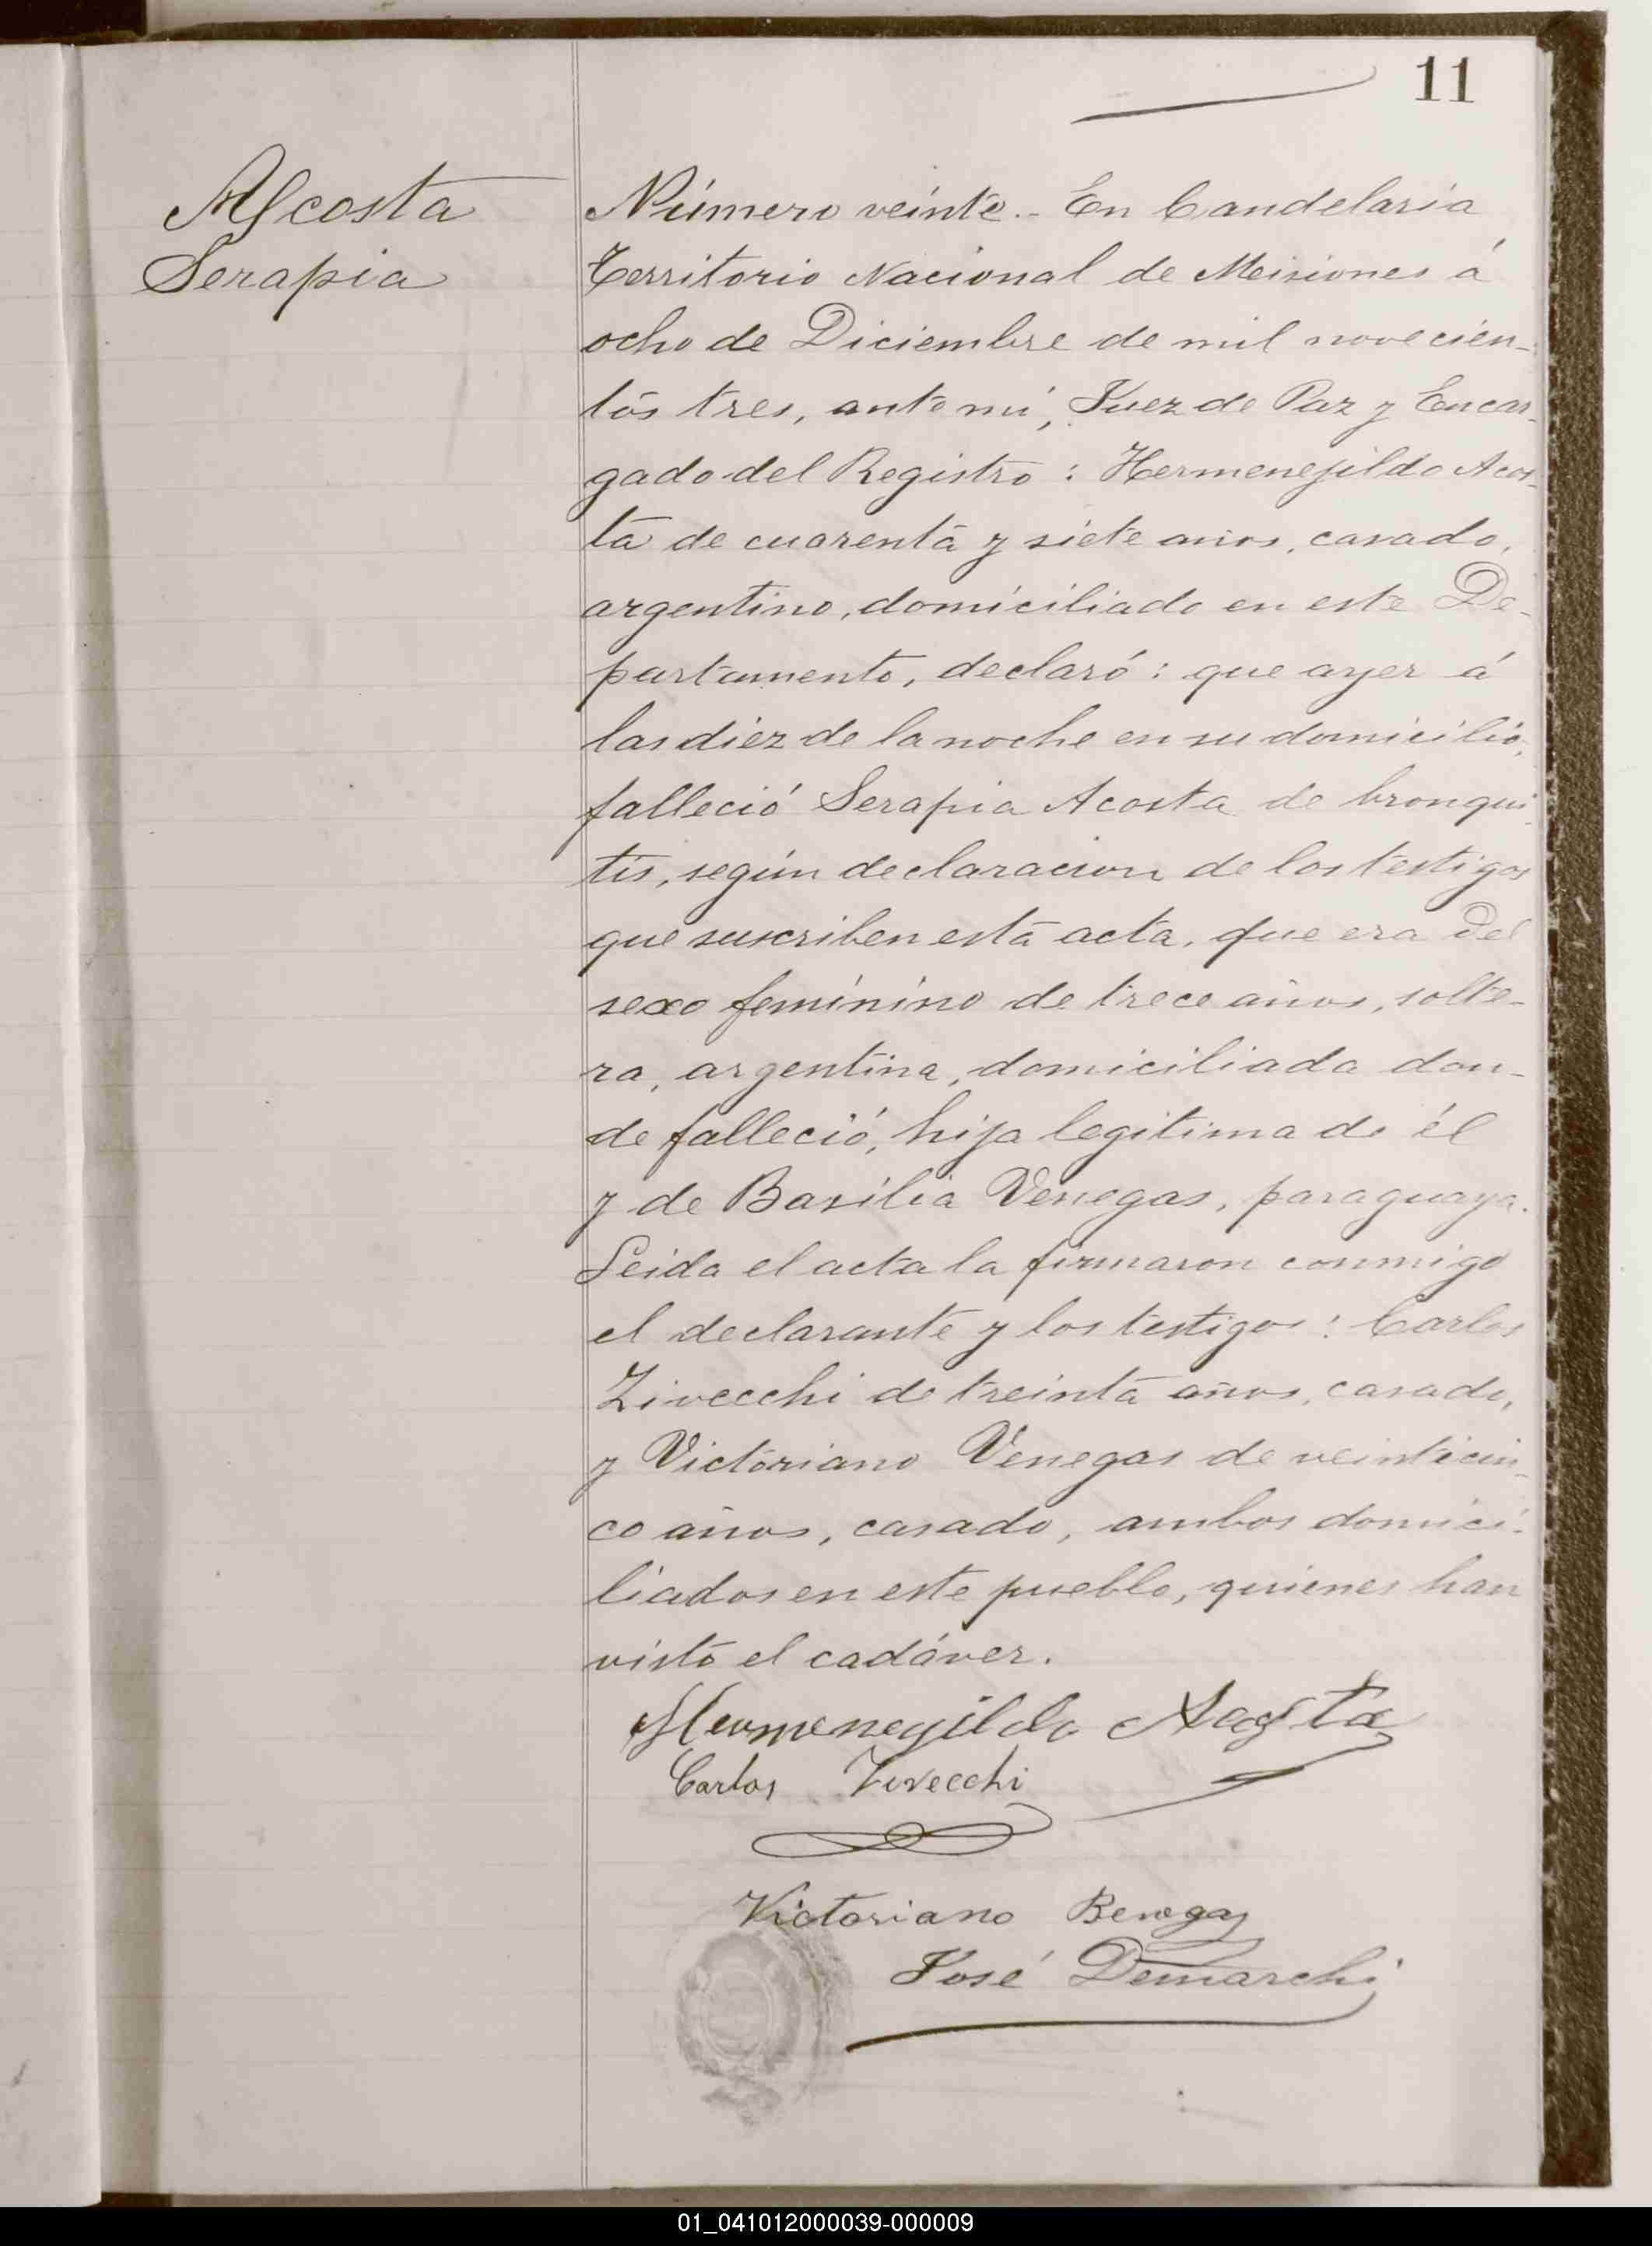 11
Acosta
Serapia
Número veinte.- En Candelaria
Territorio Nacional de Misiones á
ocho de Diciembre de mil novecien-
tos tres, ante mí, Juez de Paz y Encar-
gado del Registro: Hermenejildo Acos-
ta de cuarenta y siete años, casado,
argentino, domiciliado en este De-
partamento, declaró: que ayer á
las diez de la noche en su domicilio,
falleció Serapia Acosta de bronqui-
tis, según declaracion de los testigos
que suscriben esta acta, que era del
sexo feminino de trece años, solte-
ra, argentina, domiciliada don-
de falleció, hija legitima de él
y de Basilia Venegas, paraguaya.
Leida el acta la firmaron conmigo
el declarante y los testigos: Carlos
Zivecchi de treinta años, casado,
y Victoriano Venegas de veinticin-
co años, casado, ambos domici-
liados en este pueblo, quienes han
visto el cadáver.
Hermenegildo Acosta
Carlos Zivecchi
Victoriano Benegas
José Demarchi
01_041012000039-000009